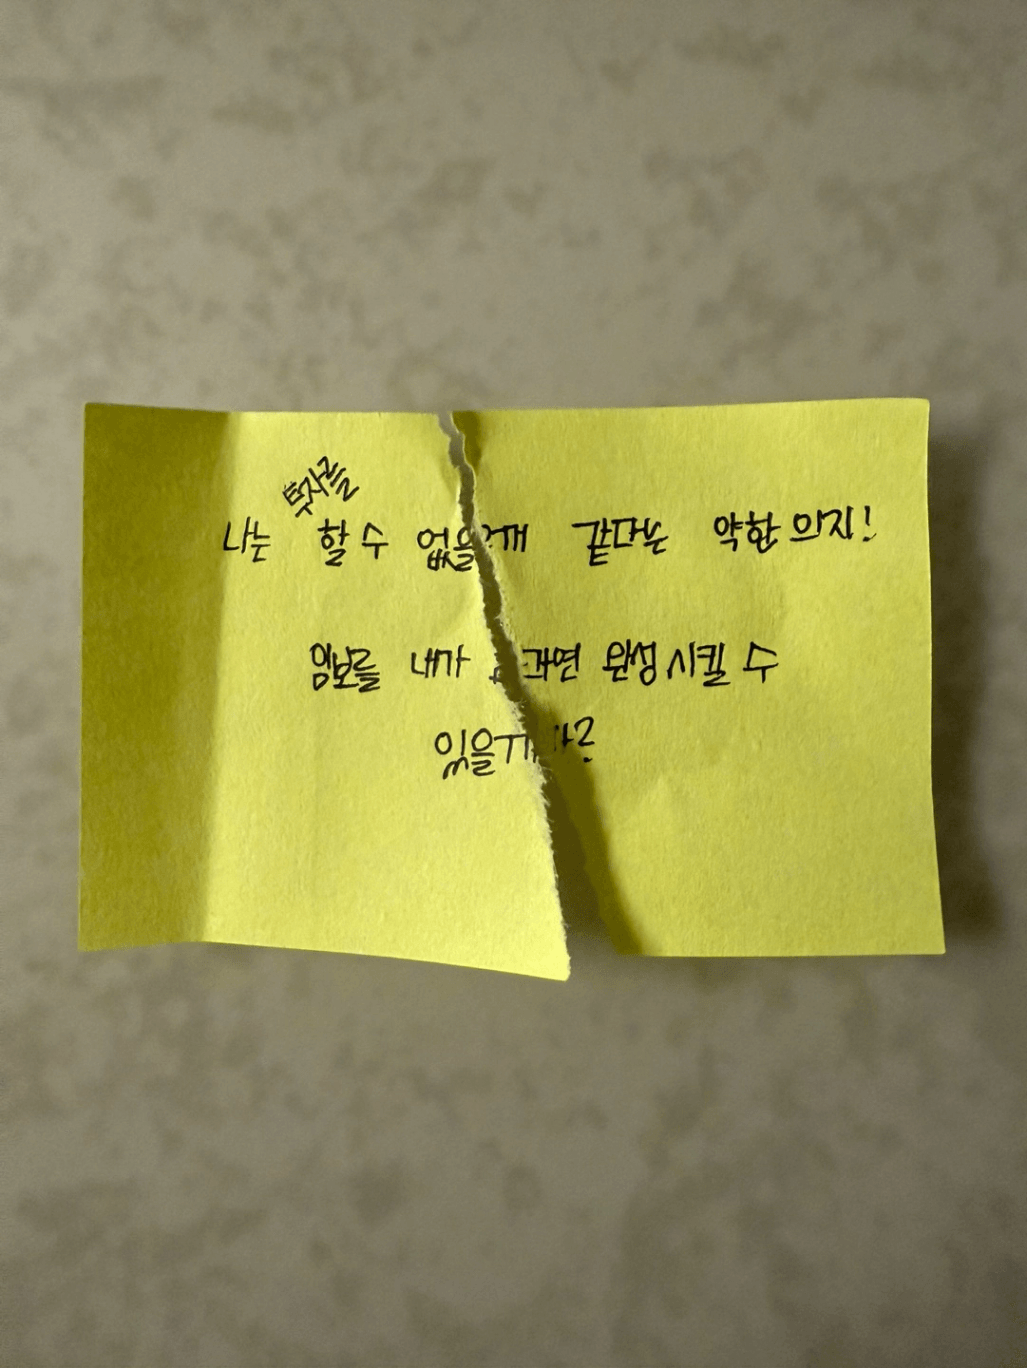 투자를
나는 할 수 없을 같다는 약한 의지!
임보를 내가 과연 완성시킬 수
있을까?